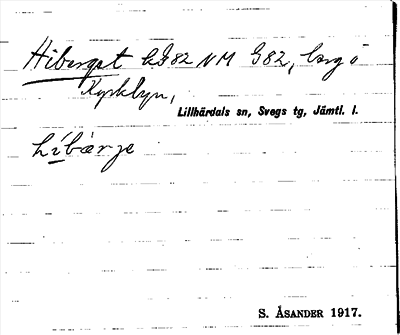 Hiberget LG82 NM G82, berg o
Kyrkbyn,
Lillhärdals sn, Svegs tg, Jämtl. l.
hìbærje
S. ÅSANDER 1917.